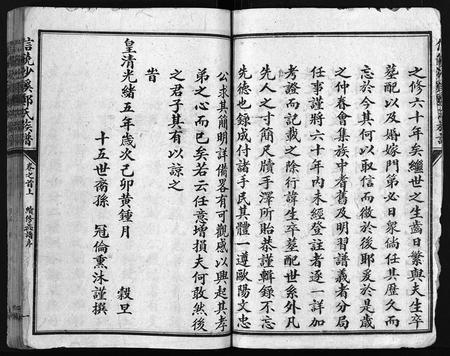 之修六十年矣繼世之生齒日繁與夫生卒
墓配以及婚嫁門弟必日衆倘任其歷久而
忘於今其何以取信而徵於後耶爰於是歲
之仲春會集族中耆舊及明習譜義者分局
任事謹將六十年內未經登註者逐一詳加
考證而記載之除行諱生卒墓配世系外凡
先人之寸簡尺牘手澤所貽恭謹輯錄不忘
先德也錄成付諸手民其體一遵歐陽文忠
公求其簡明詳備畧有可觀感以興起其孝
弟之心而已矣若云任意增損夫何敢然後
之君子其有以諒之
旹
皇清光緒五年歲次己卯黃鍾月　穀旦
十五世裔孫　冠倫熏沐謹撰
信饒沙溪鄭氏族譜
卷之首上　續修族譜序